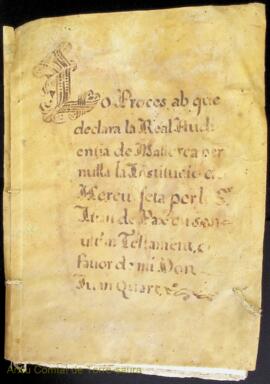 Lo Proces ab que
declara la Real Audi
enцia de Mallorca per
nulla la Institucio de
Hereu feta per lo Sr.
de Pax en son
ultim Testament, a
favor de mi Don
Juan Quart
Arxiu Comtal de Terra Santa